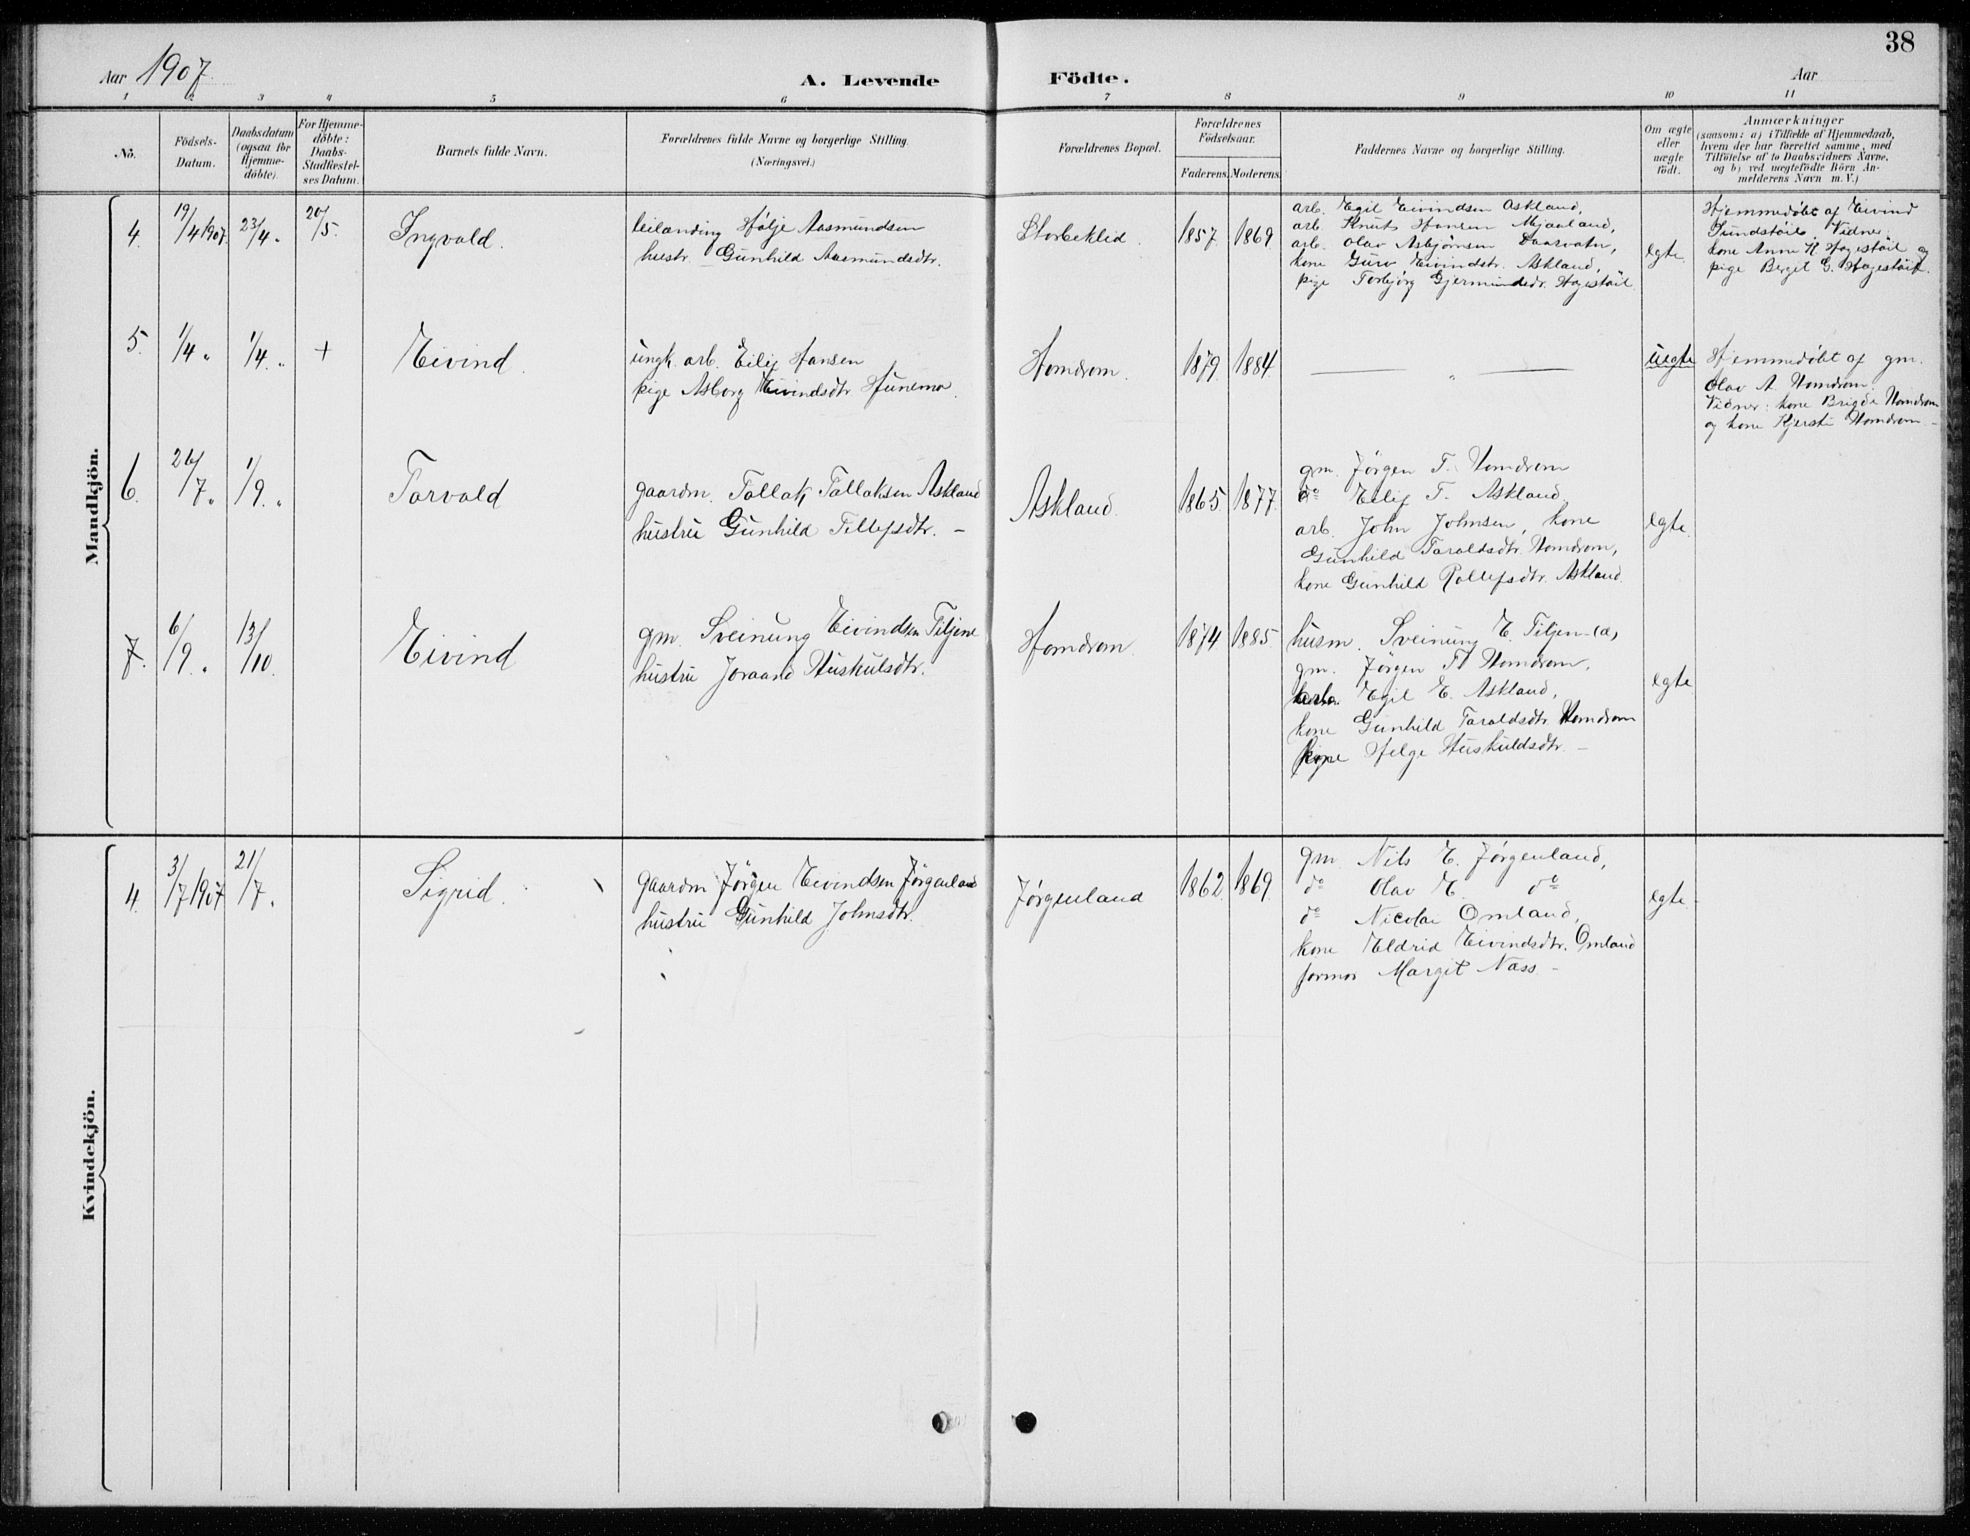 38
Aar 1907.
A. Levende Födte.
Aar
1 2 3 4 5 6 7 8 9 10 11
No.
Födsels-Datum.
Daabsdatum (ogsaa for Hjemme-döbte).
For Hjemme-döbte: Daabs-Stadfæstel-ses Datum.
Barnets fulde Navn.
Forældrenes fulde Navne og borgerlige Stilling.
(Næringsvei.)
Forældrenes Bopæl.
Forældrenes Födselsaar.
Faderens. Moderens.
Faddernes Navne og borgerlige Stilling.
Om ægte eller uægte födt.
Anmærkninger
(saasom: a) i Tilfælde af Hjemmedaab,
hvem der har forrettet samme, med
Tilföielse af to Daabsvidners Navne,
og b) ved uægtefödte Börn An-
melderens Navn m. V.)
Mandkjön.
4. 19/4 1907. 23/4 „ 20/5. Ingvald.
leilænding Hølje Aasmundsen
hustr. Gunhild Aasmundsdtr.
Storbeklid. 1857. 1869
arb. Egil Eivindsen Askland,
arb. Knut Hansen Mjaaland,
arb. Olav Asbjørnsen Daarvatn,
kone Guro Eivindstr. Askland,
pige Torbjørg Gjermundsdr. Høgestøil
egte.
Hjemmedøbt af Eivind
Sundstøil. Vidner:
kone Anne K. Høgestøil og
pige Bergit G. Høgestøil.
5. 1/4 „ 1/4. „ + Eivind.
ungk. arb. Eilef Hansen
pige Asborg Eivindsdtr Hunemo.
Homdrom. 1879. 1884.
— „ —
uegte
Hjemmedøbt af gm.
Olav A. Homdrom.
Vidner: kone Brigde Homdrom
og kone Kjersti Homdrom –
6. 26/7 „ 1/9. „ Tarvald
gaardm. Tallak Tallaksen Askland
hustru Gunhild Tellefsdtr. –
Askland. 1865. 1877.
gm. Jørgen T. Homdrom
do Eilef T. Askland.
arb. John Johnsen, kone
Gunhild Taraldsdtr. Homdrom,
kone Gunhild Rollefsdtr. Askland.
egte.
7. 6/9. „ 13/10. Eivind
gm. Sveinung Eivindsen Tiljene
hustru Joraand Huskulsdtr.
Homdrom. 1874 1885.
husm. Sveinung E. Tiljen-(a)
gm. Jørgen T. Homdrom.
arb. Egil E. Askland,
kone Gunhild Taraldsdtr. Homdrom
pige Helge Huskuldsdtr. –
egte
Kvindekjön.
4. 3/7 1907 21/7. „ Sigrid.
gaardm Jørgen Eivindsen Jørgenland
hustru Gunhild Johnsdtr.
Jørgenland 1862. 1869.
gm. Nils E. Jørgenland,
do Olav E. do
do Nicolai Omland,
kone Eldrid Eivindsdtr. Omland
farmor Margit Næss –
egte.